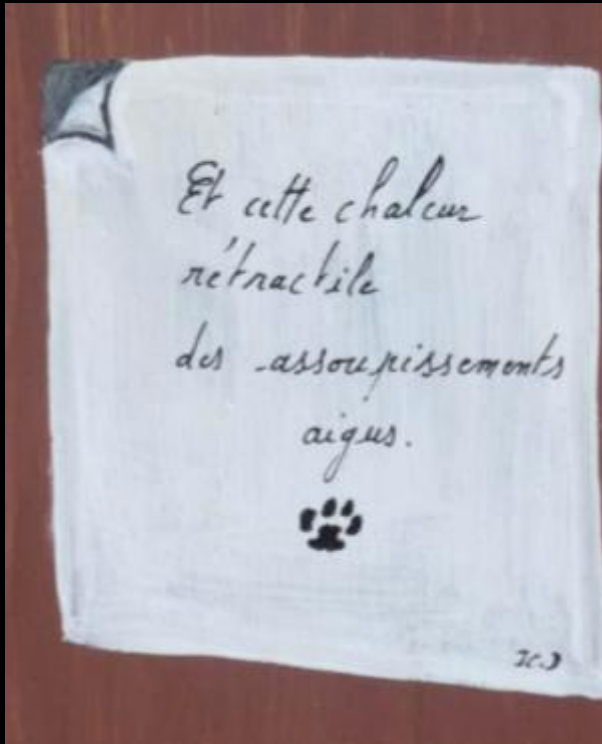 Et cette chaleur
rétractile
des assoupissements
aigus.